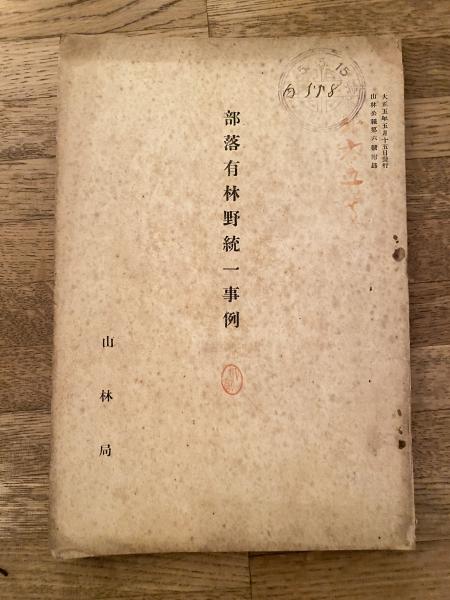 大正五年五月十五日發行
山林公報第六號附錄
5 15
598
部落有林野統一事例
山林局